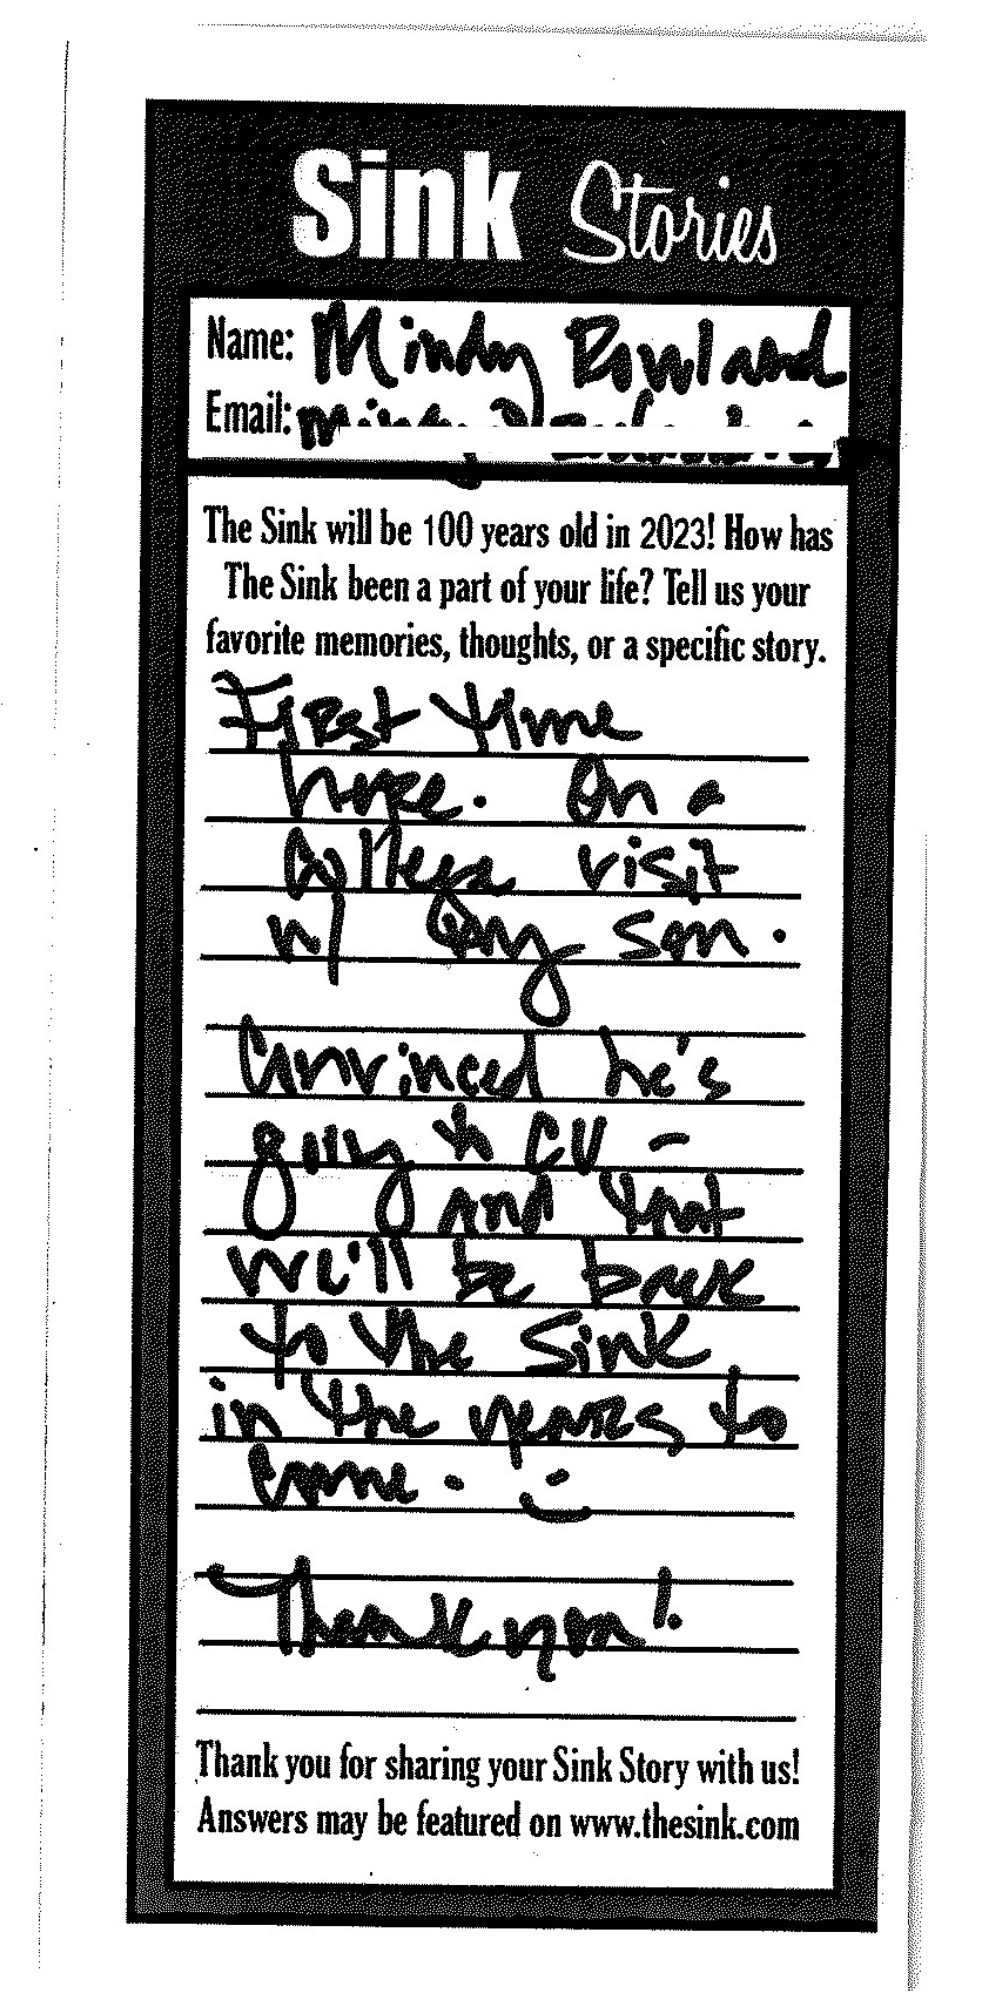 Sink Stories
Name: Mindy Rowland
Email:
The Sink will be 100 years old in 2023! How has
The Sink been a part of your life? Tell us your
favorite memories, thoughts, or a specific story.
First time
here. On a
college visit
w/ my son.
Convinced he's
going to CU -
and that
we'll be back
to the Sink
in the years to
come.
Thank you!
Thank you for sharing your Sink Story with us!
Answers may be featured on www.thesink.com